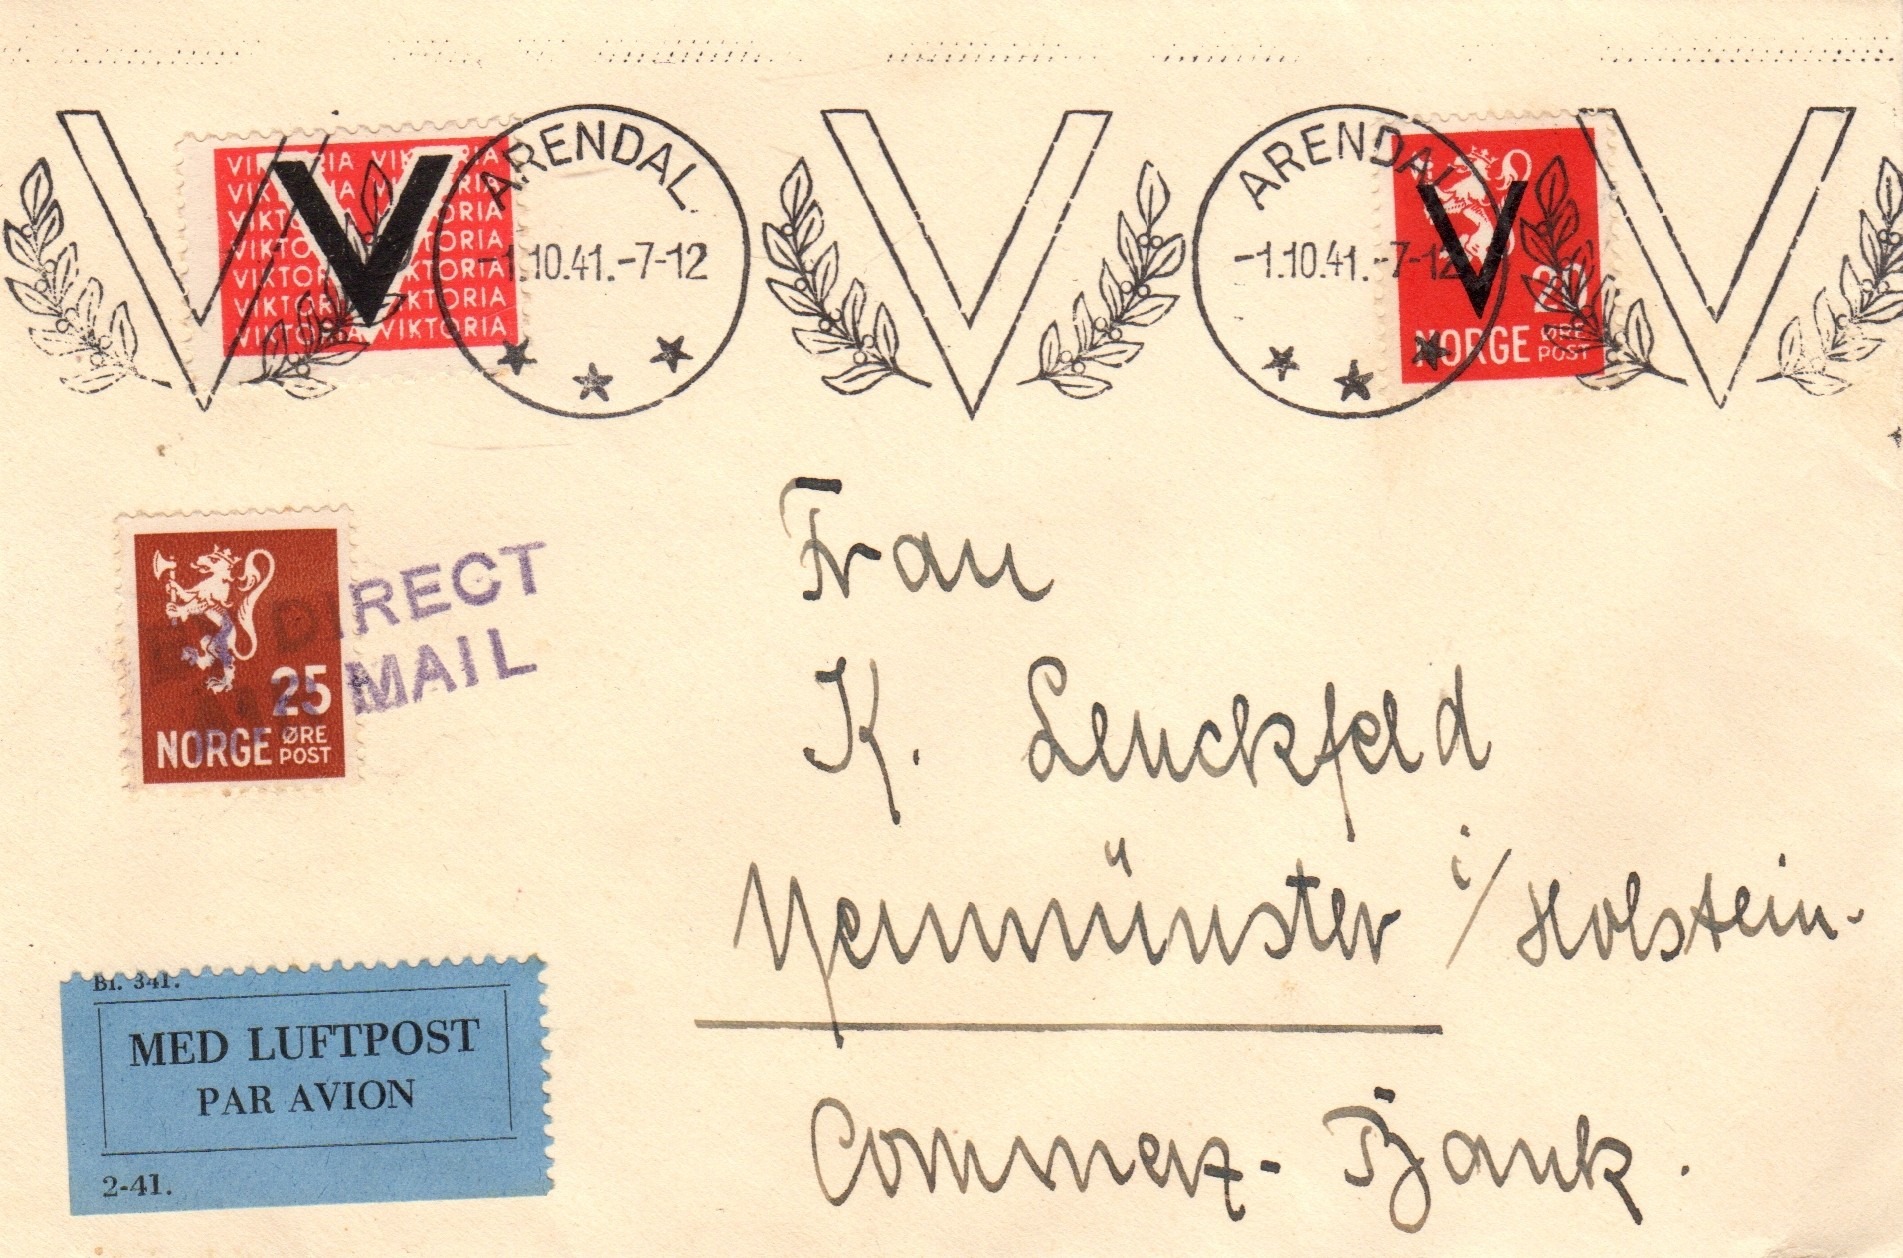 VIKTORIA VIKTORIA
VIKTORIA VIKTORIA
VIKTORIA VIKTORIA
VIKTORIA VIKTORIA
VIKTORIA VIKTORIA
VIKTORIA VIKTORIA
VIKTORIA VIKTORIA
V
ARENDAL
-1.10.41.-7-12
V
ARENDAL
-1.10.41.-7-12
V
20
NORGE ØRE
POST
V
V
BY DIRECT
AIR MAIL
25
NORGE ØRE
POST
Frau
K. Leuckfeld
Neumünster i/Holstein-
Commerz-Bank.
Bl. 341.
MED LUFTPOST
PAR AVION
2-41.